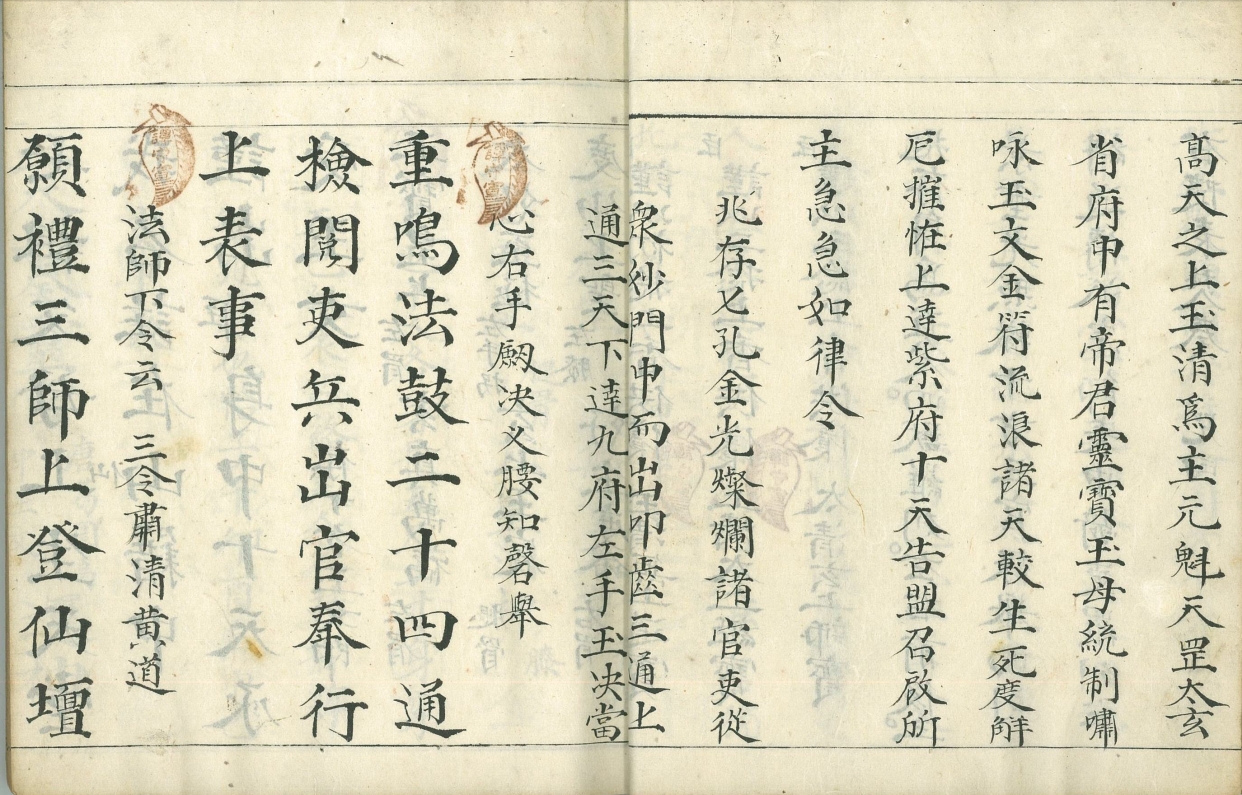 高天之上玉清爲主元魁天罡太玄
省府中有帝君靈寶玉母統制嘯
咏玉文金符流浪諸天較生死度觧
厄摧恠上達紫府十天告盟召啟所
主急急如律令
兆存七孔金光燦爛諸官吏從
衆妙門中而出叩齒三通上
通三天下達九府左手玉決當
心右手劂决义腰知磬舉
重鳴法鼓二十四通
檢閱吏兵出官奉行
上表事
法師下令云 三令肅清黄道
願禮三師上登仙壇